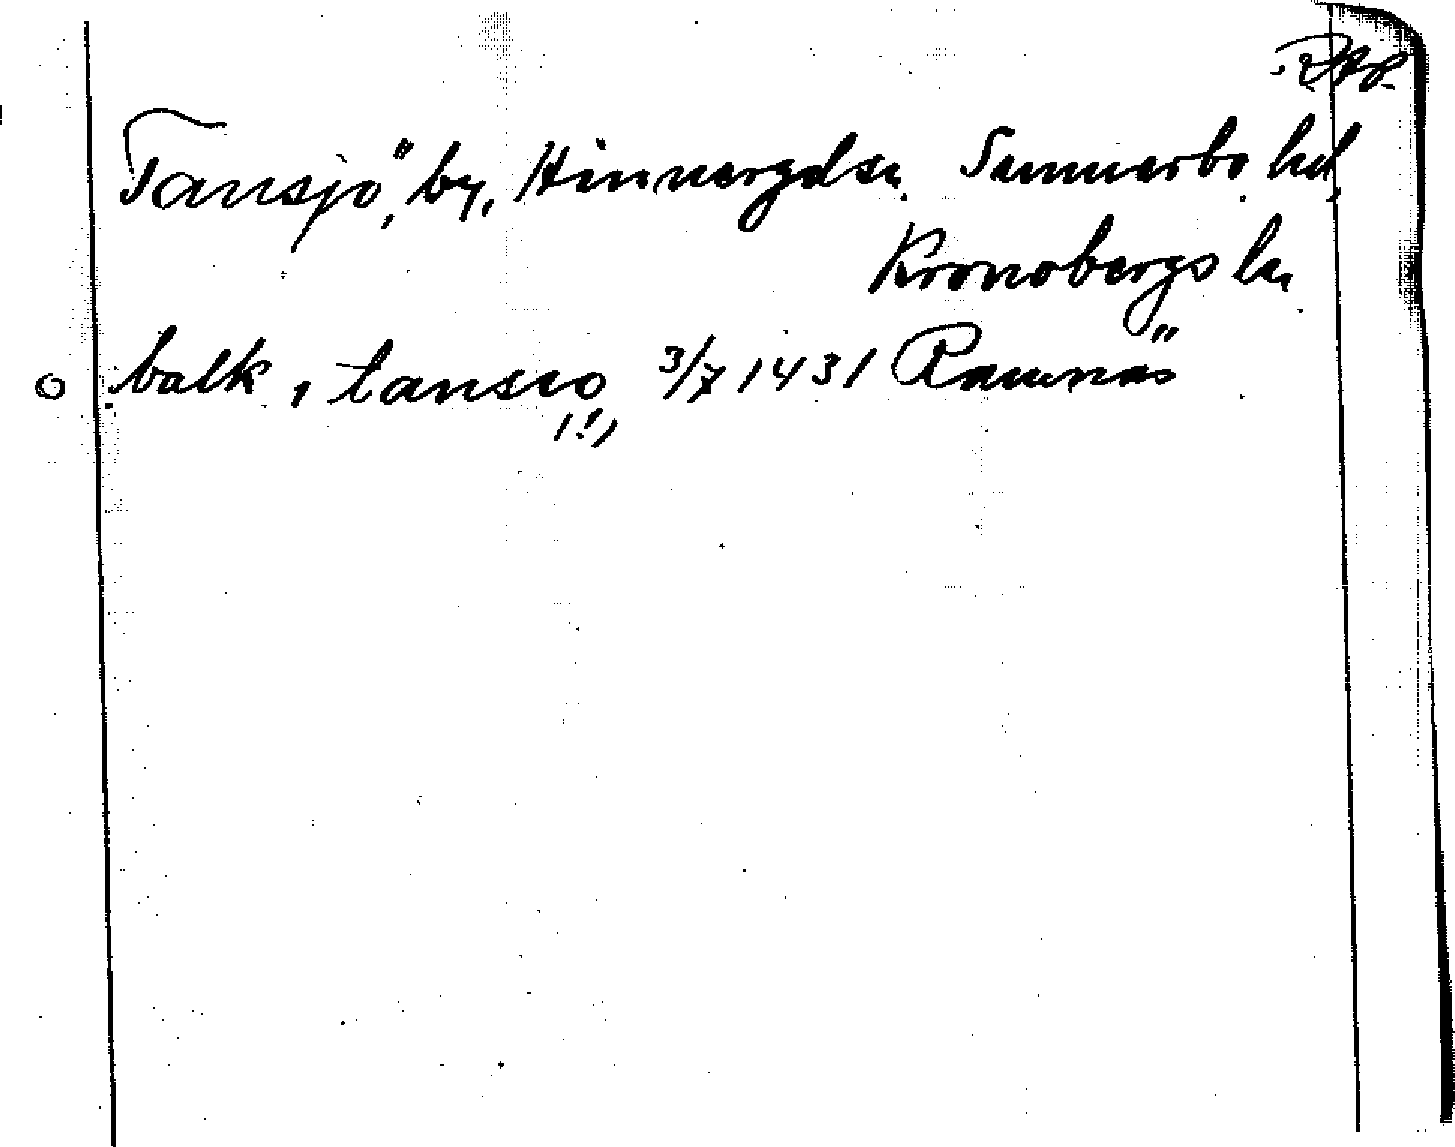 RAP.
Tansjö, by, Hinneryds sn. Sunnerbo hd,
Kronobergs ln
o balk, i tanseo 3/7 1431 Ramnäs
(!)